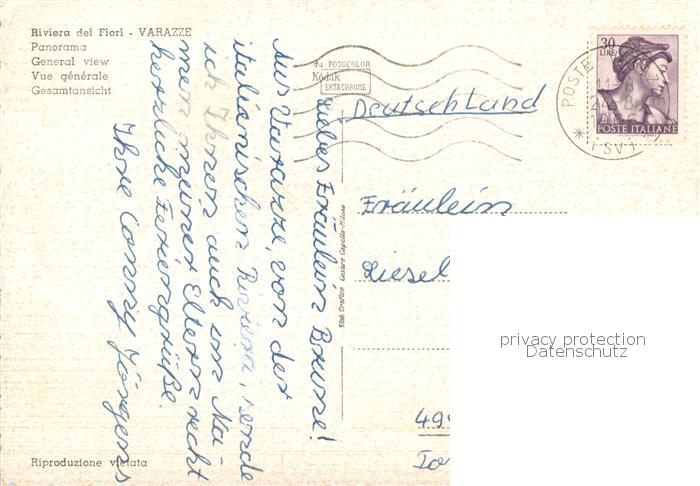 Riviera dei Fiori - VARAZZE
Panorama
General view
Vue générale
Gesamtansicht
4a FOTOCOLOR
Kodak
EKTACHROME
30
LIRE
POSTE ITALIANE
POSTE
(SV)
Deutschland
Fräulein
Liesel
Liebes Fräulein Brune!
Aus Varazze, von der
italienischen Riviera, sende
ich Ihnen auch im Na-
men meiner Eltern recht
herzliche Feriengrüße.
Ihre Conny Jörgens
Stab. Grafico Cesare Capello - Milano
privacy protection
Datenschutz
Riproduzione vietata